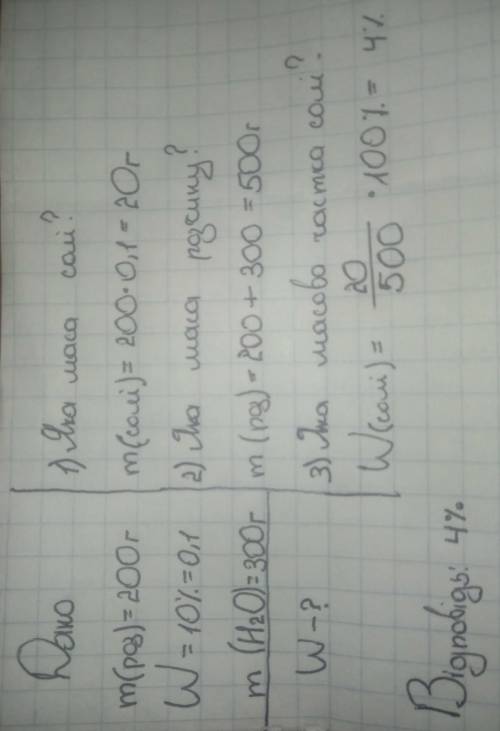 Дано
m(роз)=200г
W=10%=0,1
m(H₂O)=300г
W-?
1) Яка маса солі?
m(солі)=200·0,1=20г
2) Яка маса розчину?
m(роз)=200+300=500г
3) Яка масова частка солі?
W(солі)= 20/500 ·100%= 4%
Відповідь: 4%